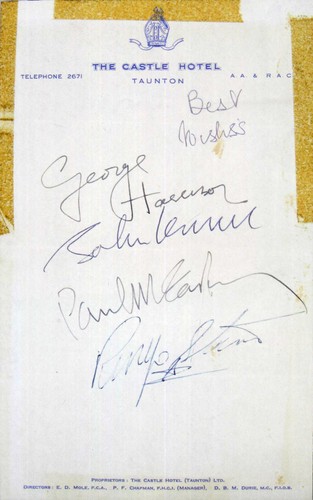 THE CASTLE HOTEL
TELEPHONE 2671 TAUNTON A.A. & R.A.C.
Best
Wishes
George
Harrison
John Lennon
Paul McCartney
Ringo Starr
PROPRIETORS: THE CASTLE HOTEL (TAUNTON) LTD.
DIRECTORS: E. D. MOLE, F.C.A., P. F. CHAPMAN, F.H.C.I. (MANAGER), D. B. M. DURIE, M.C., F.I.O.B.